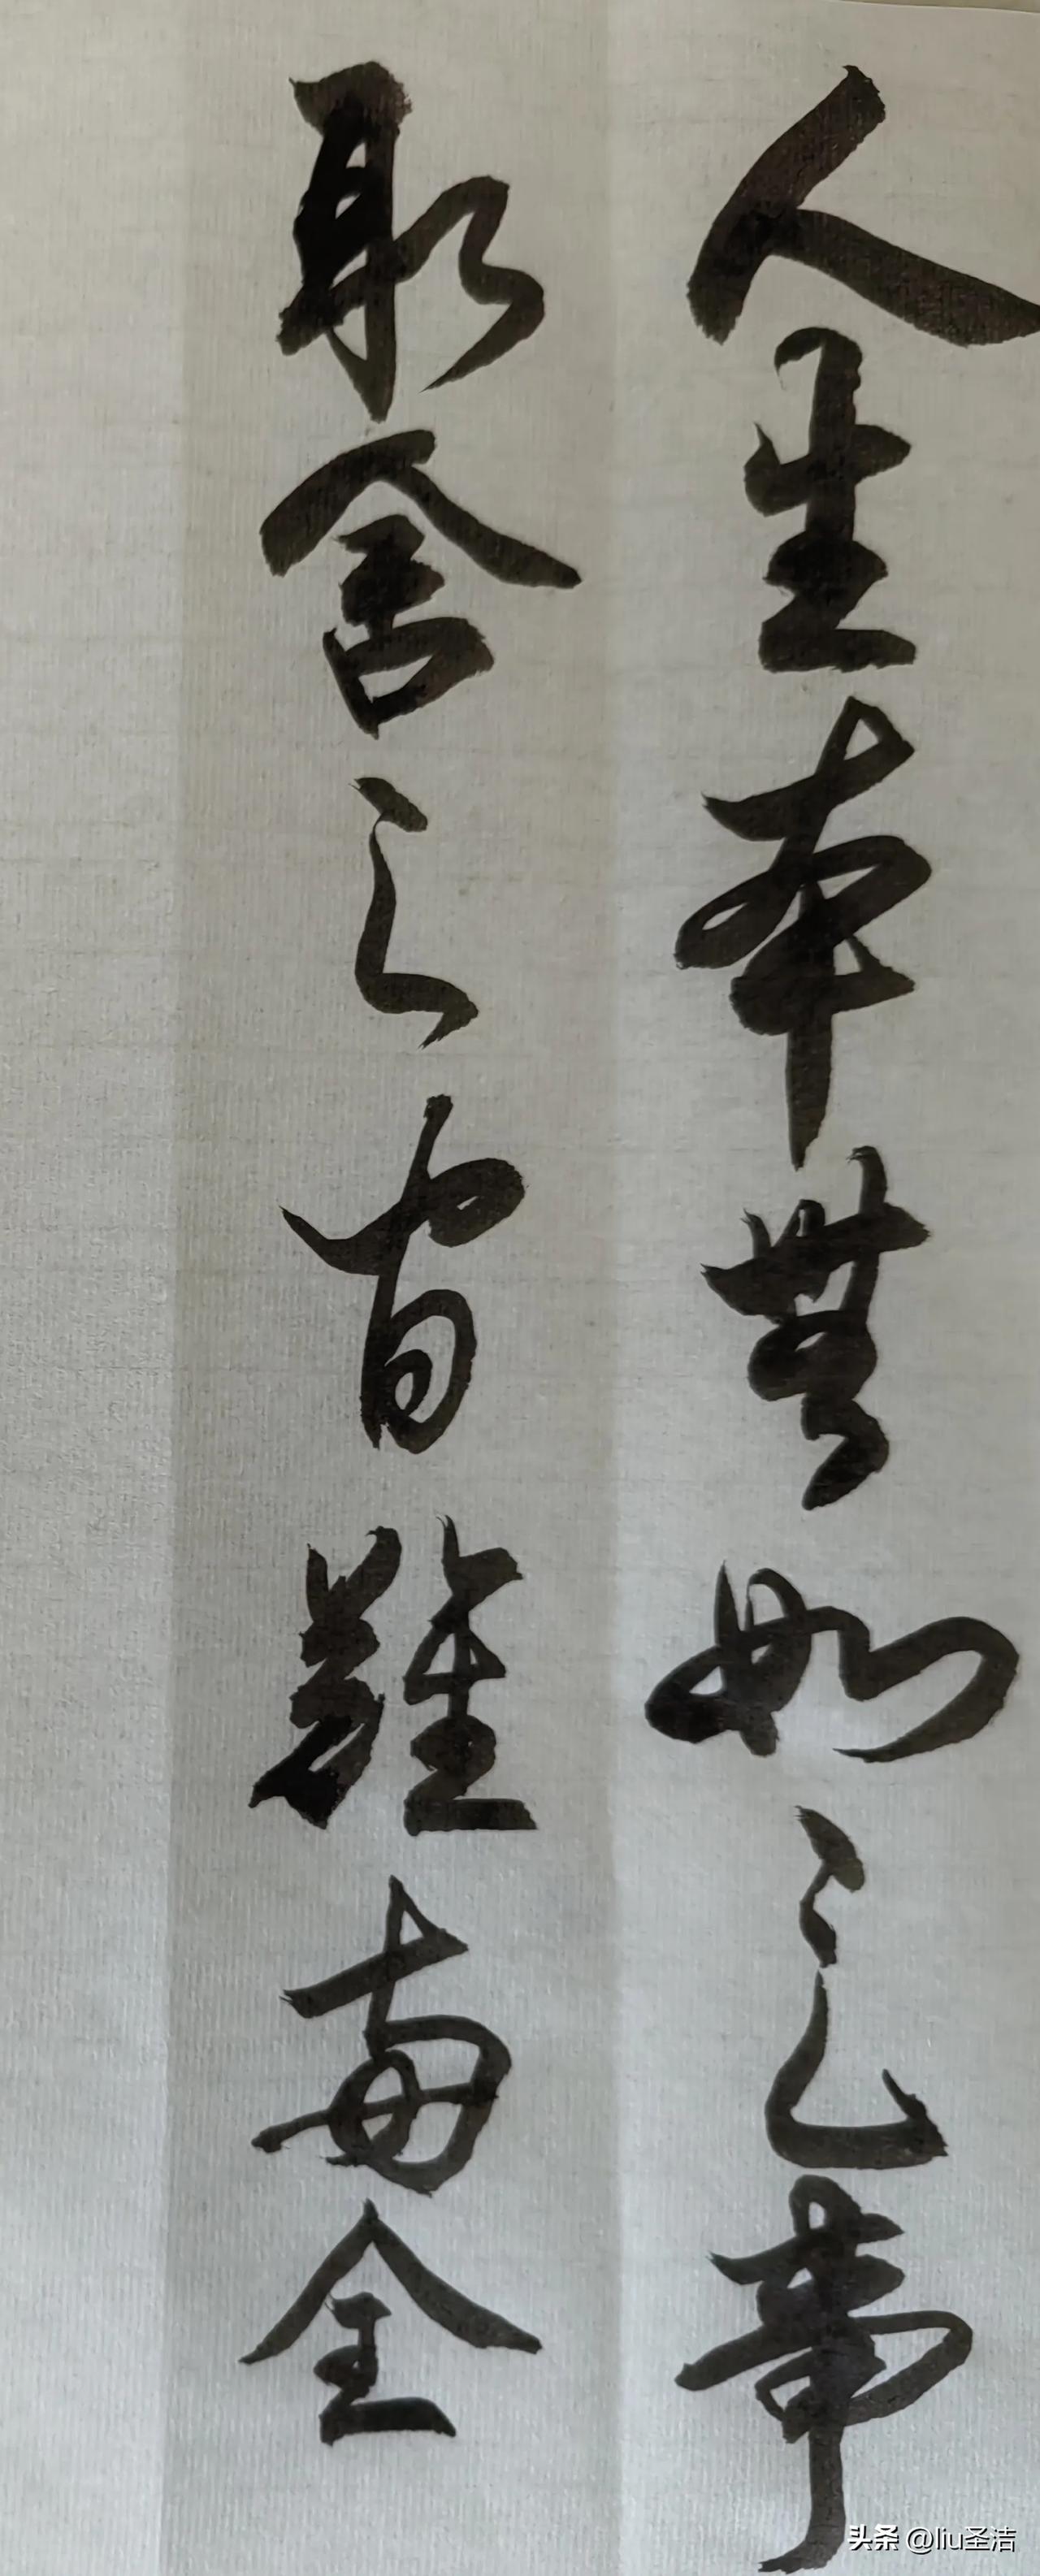 人生本無如意事
取舍之間難兩全
头条 @liu圣洁